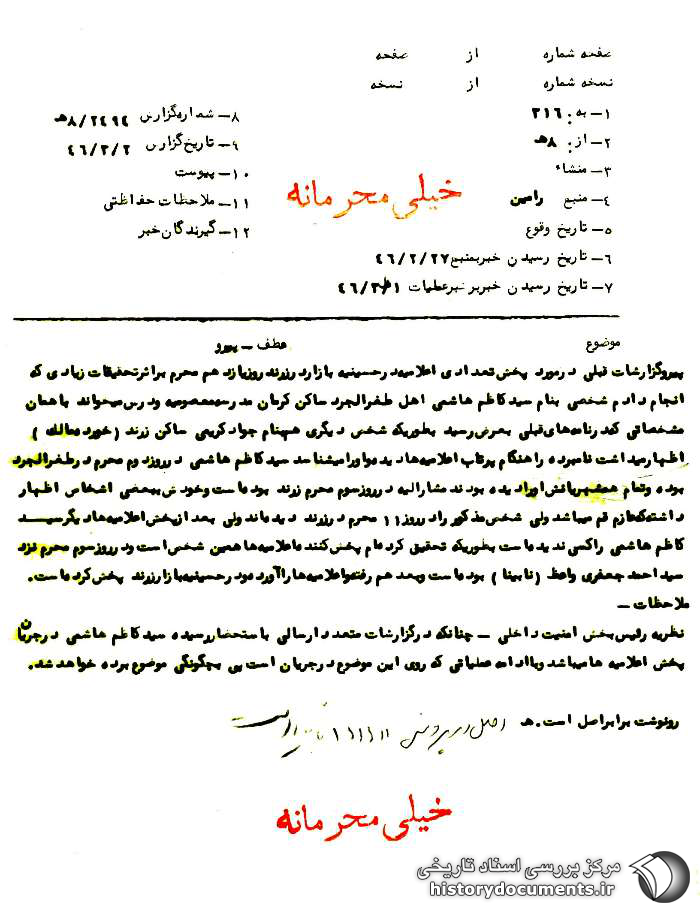 صفحه شماره از صفحه
نسخه شماره از نسخه
۱- به: ۳۱۶
۸- شماره گزارش ۸/۲۴۹۴ﻫ
۲- از: ۸ﻫ
۹- تاریخ گزارش ۴۶/۳/۲
۳- منشاء
۱۰- پیوست
۴- منبع رامین
۱۱- ملاحظات حفاظتی
خیلی محرمانه
۵- تاریخ وقوع
۱۲- گیرندگان خبر
۶- تاریخ رسیدن خبر بمنبع ۴۶/۲/۲۷
۷- تاریخ رسیدن خبر برهبر عملیات ۴۶/۳/۱
موضوع عطف - پیرو
پیرو گزارشات قبلی در مورد پخش تعدادی اعلامیه در حسینیه بازار در زرند روز یازدهم محرم بر اثر تحقیقات زیادی که
انجام دادم شخصی بنام سید کاظم هاشمی اهل طغرالجرد ساکن کرمان مدرسه معصومیه و درس میخواند با همان
مشخصاتی که در نامه های قبلی بعرض رسید بطوریکه شخص دیگری همینام جواد کریمی ساکن زرند (خورده مالک)
اظهار میداشت نامبرده را هنگام پرتاب اعلامیه ها دیده و او را میشناسد سید کاظم هاشمی در روز دوم محرم در طغرالجرد
بوده و تمام همشهریانش او را دیده بودند مشارالیه در روز سوم محرم زرند بوده است و خودش ببعضی اشخاص اظهار
داشته که عازم قم میباشد ولی شخص مذکور را در روز ۱۱ محرم در زرند دیده اند ولی بعد از پخش اعلامیه ها دیگر سید
کاظم هاشمی را کسی ندیده است بطوریکه تحقیق کرده ام پخش کننده اعلامیه ها همین شخص است و در روز سوم محرم نزد
سید احمد جعفری واعظ (نابینا) بوده است و بعد هم رفته و اعلامیه ها را آورده و در حسینیه بازار زرند پخش کرده است.
ملاحظات -
نظریه رئیس بخش امنیت داخلی - چنانکه در گزارشات متعدد ارسالی باستحضار رسیده سید کاظم هاشمی در جریان
پخش اعلامیه ها میباشد و با ادامه عملیاتی که روی این موضوع در جریان است پی بچگونگی موضوع برده خواهد شد.
رونوشت برابر اصل است. ﻫ
اصل در پرونده
خیلی محرمانه
مرکز بررسی اسناد تاریخی
historydocuments.ir